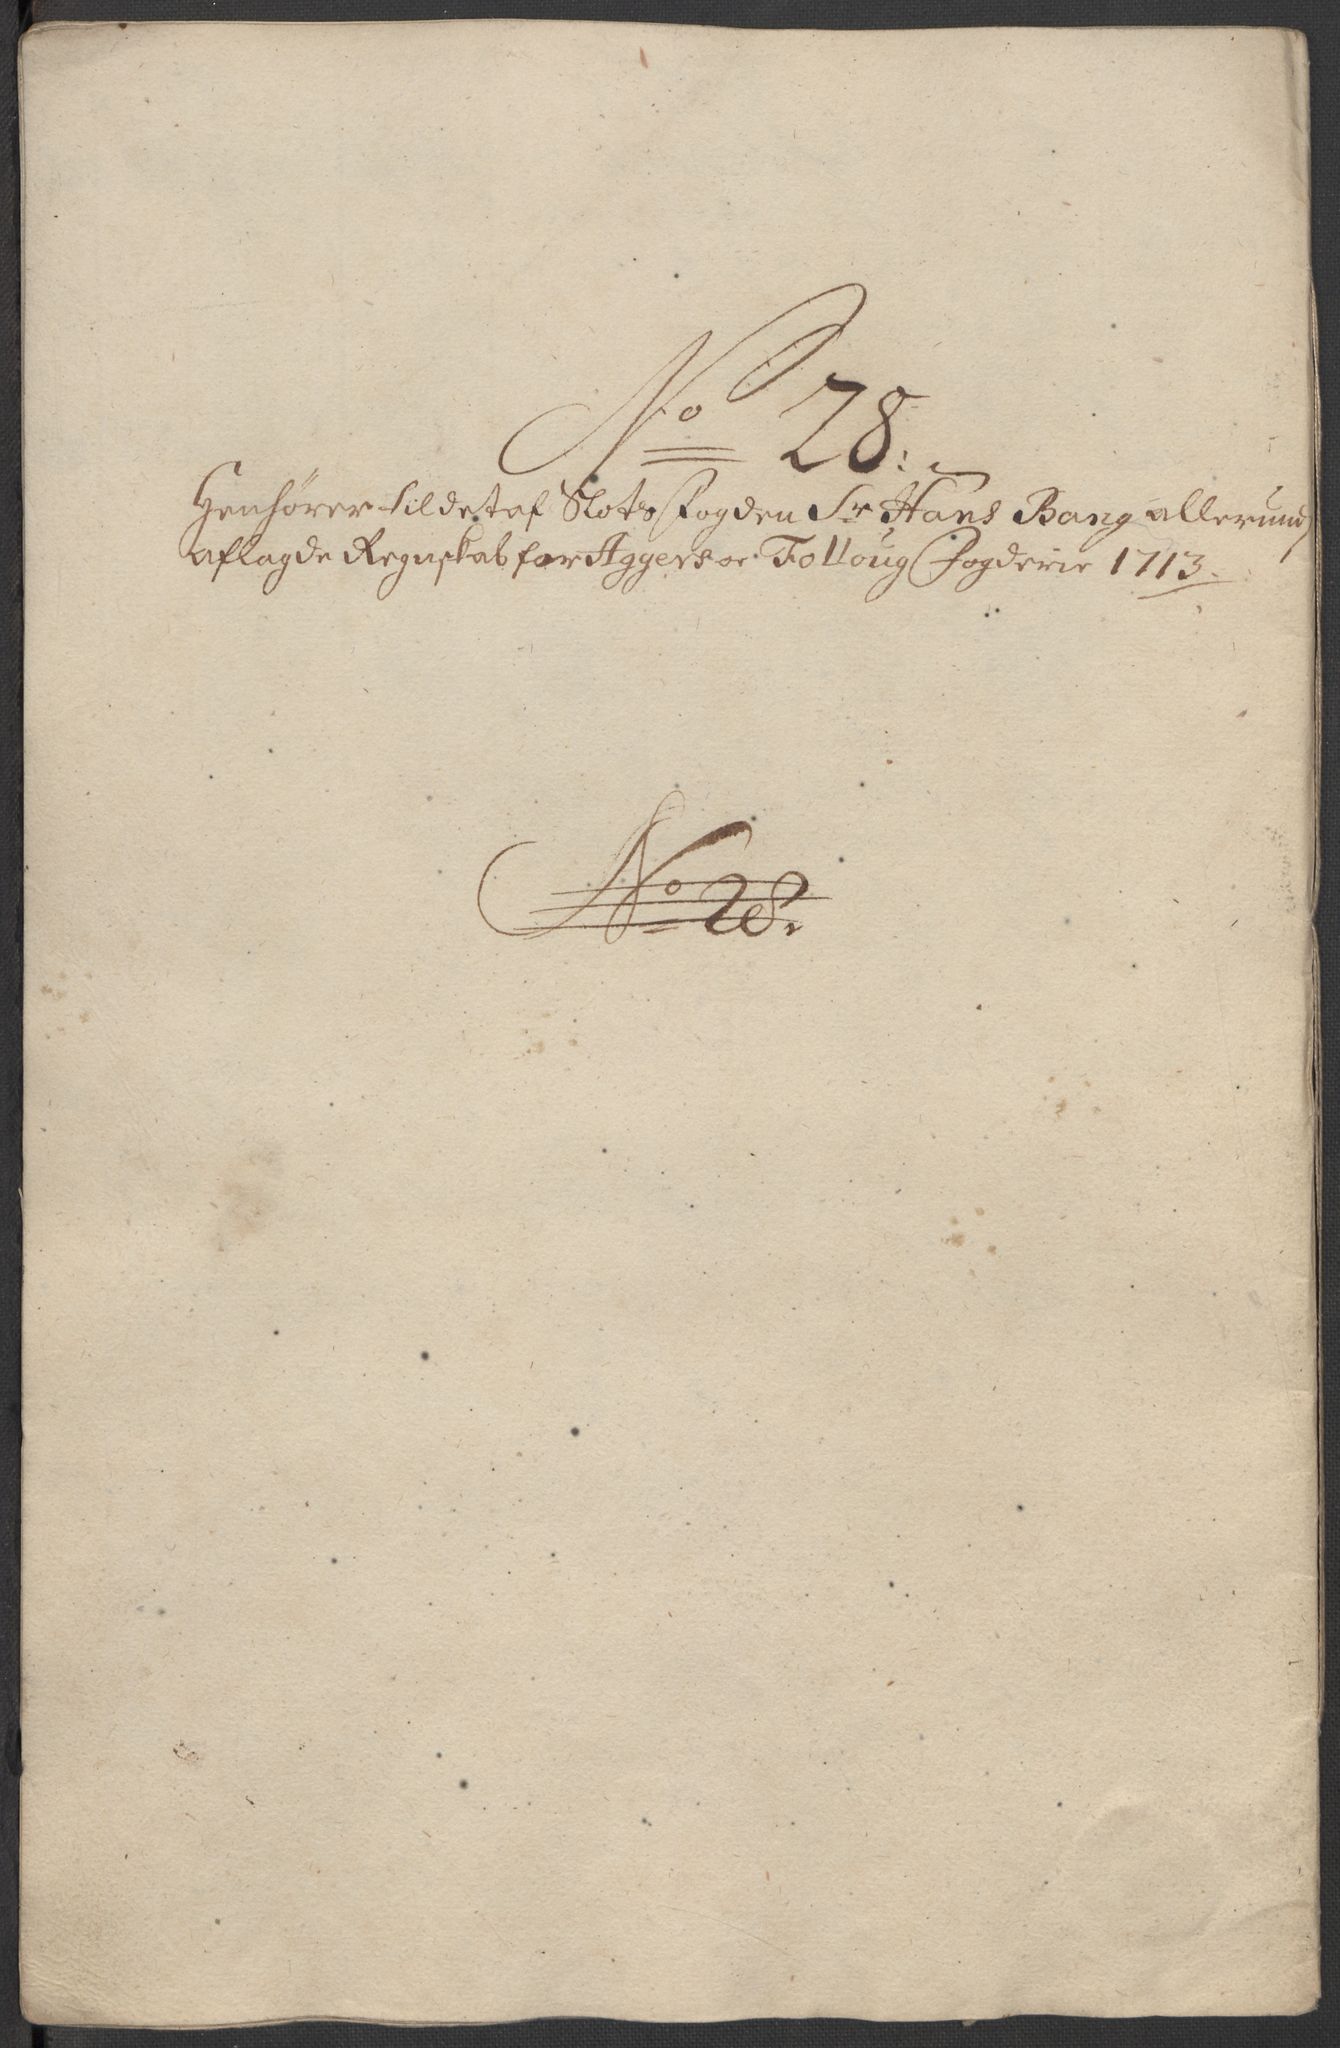 No 28:
Henhører til det af Slots Fogden Sr Hans Bang allerund
aflagde Regnskab for Aggers oc Folloug Fogderie 1713.
No 28.